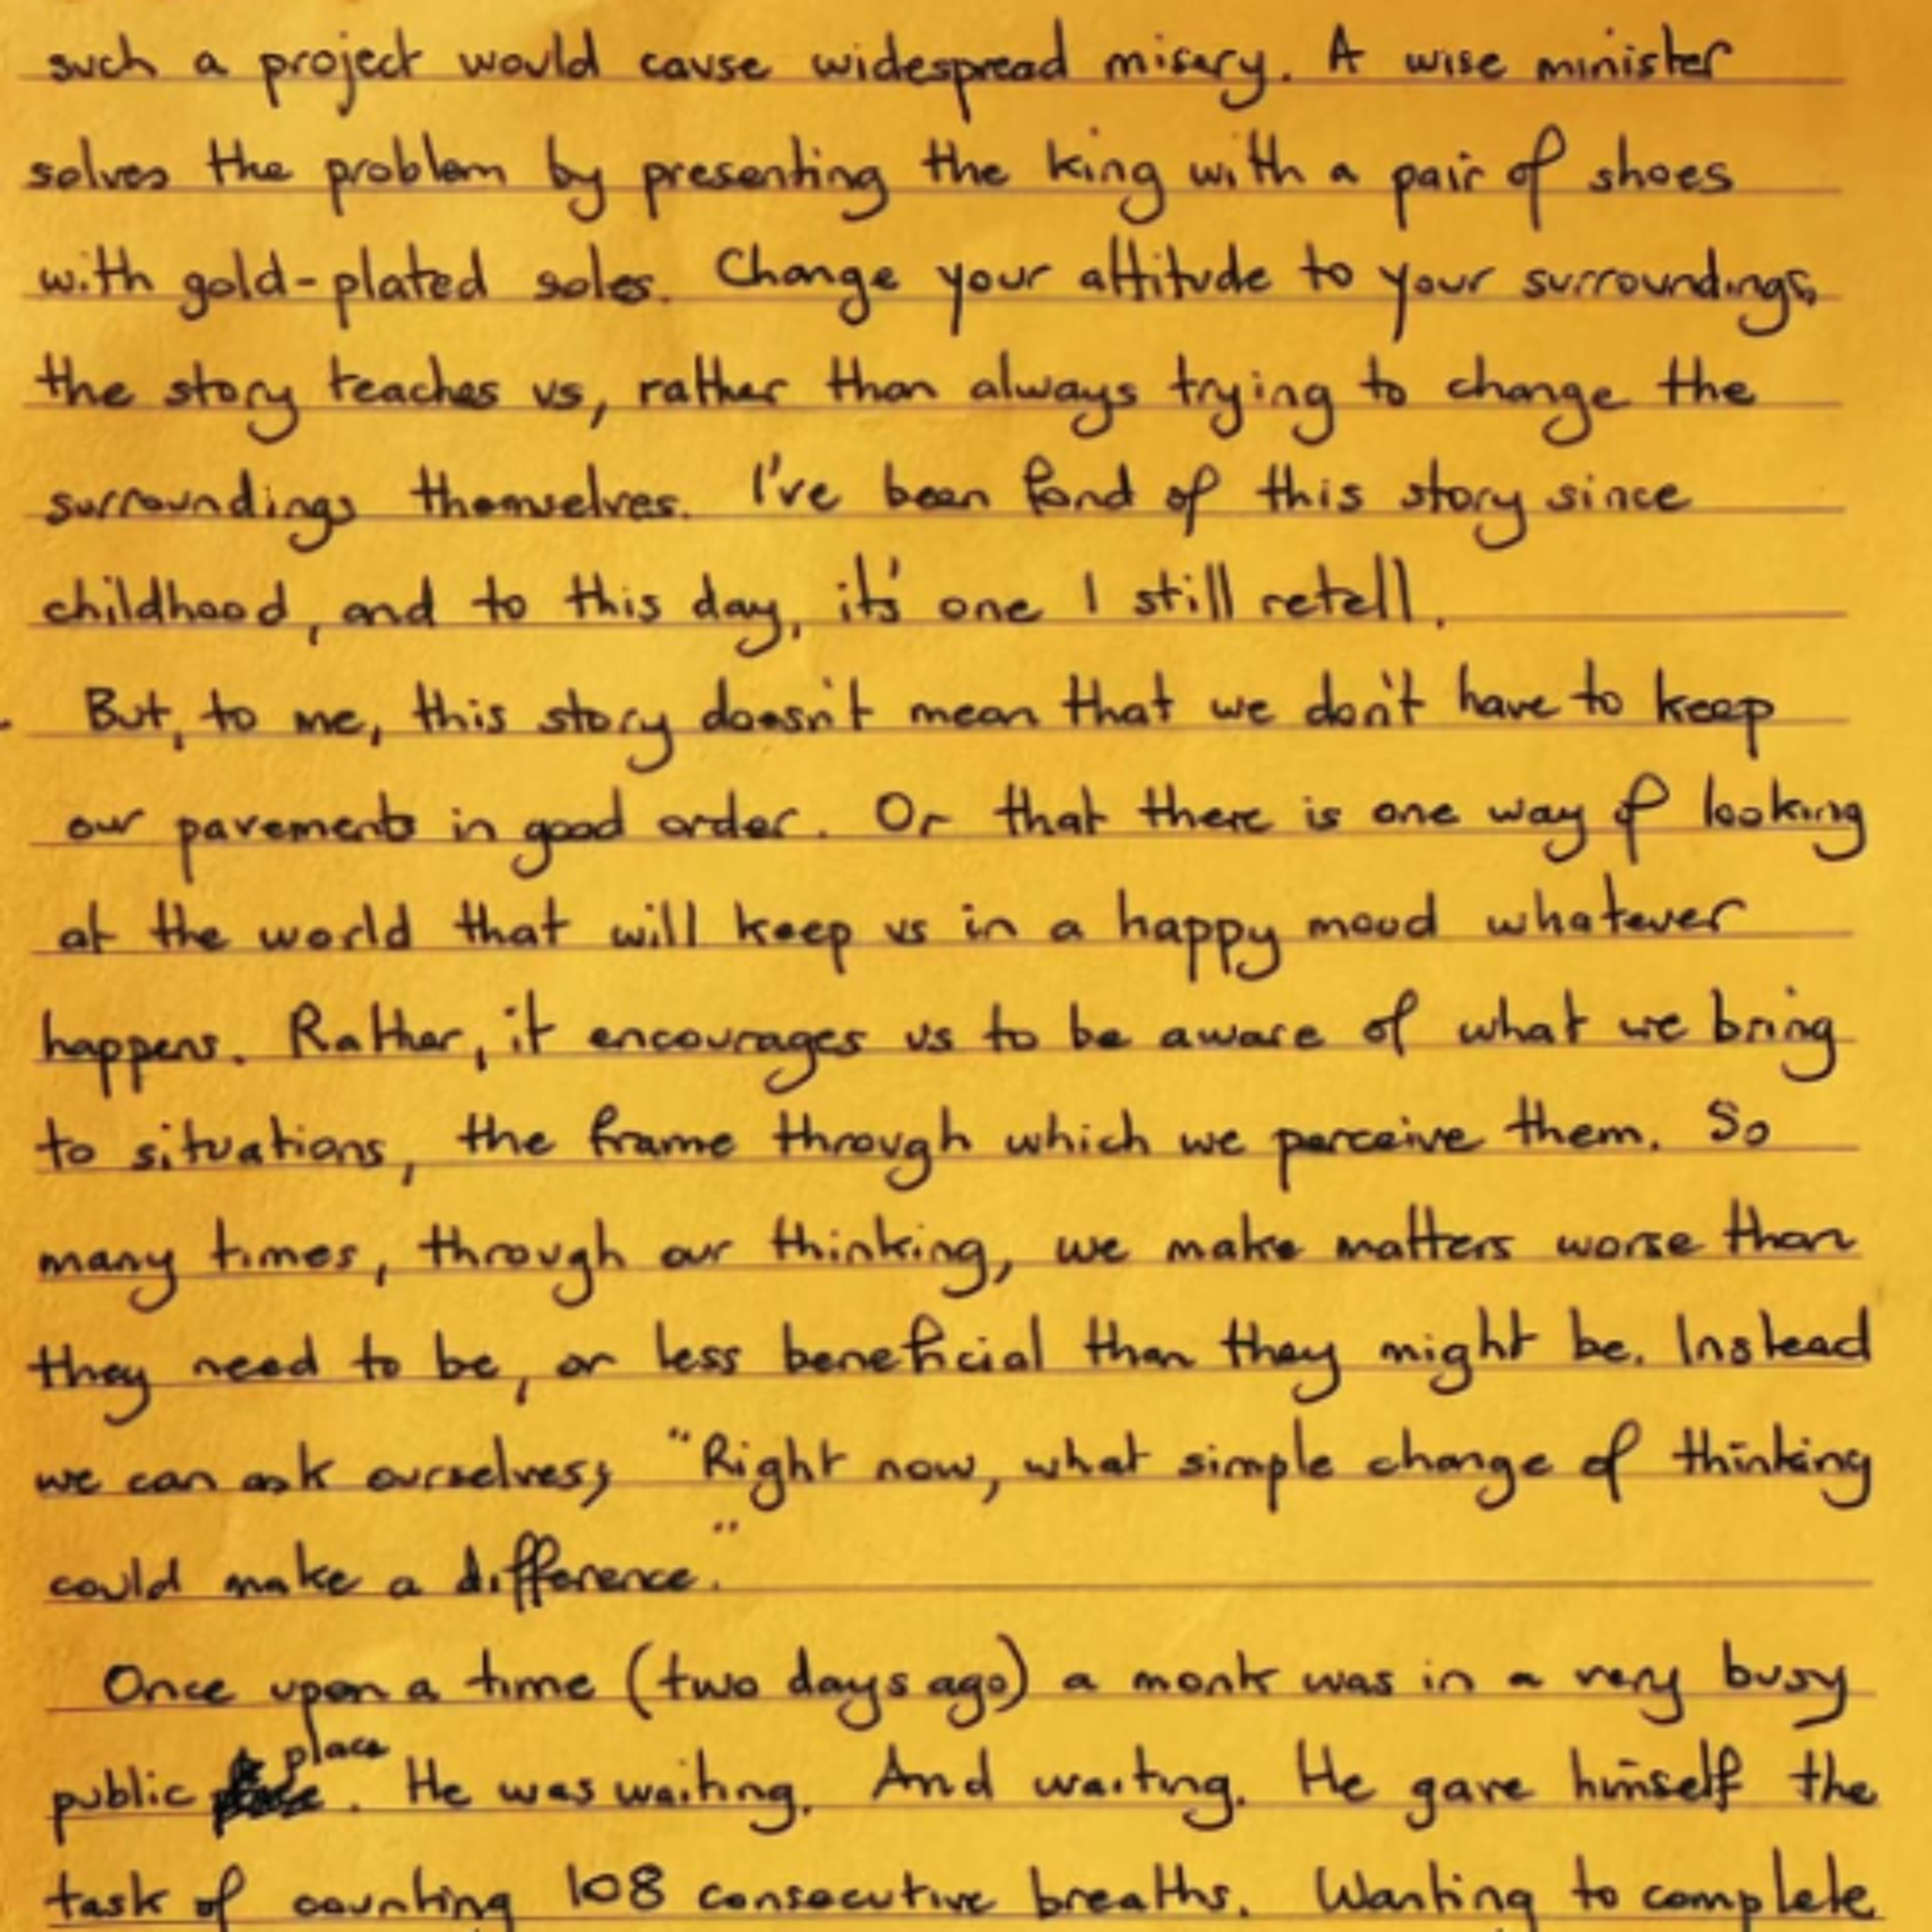 such a project would cause widespread misery. A wise minister
solves the problem by presenting the king with a pair of shoes
with gold-plated soles. Change your attitude to your surroundings,
the story teaches us, rather than always trying to change the
surroundings themselves. I've been fond of this story since
childhood, and to this day, it's one I still retell.
But, to me, this story doesn't mean that we don't have to keep
our pavements in good order. Or that there is one way of looking
at the world that will keep us in a happy mood whatever
happens. Rather, it encourages us to be aware of what we bring
to situations, the frame through which we perceive them. So
many times, through our thinking, we make matters worse than
they need to be, or less beneficial than they might be. Instead
we can ask ourselves, "Right now, what simple change of thinking
could make a difference."
Once upon a time (two days ago) a monk was in a very busy
public place. He was waiting. And waiting. He gave himself the
task of counting 108 consecutive breaths. Wanting to complete